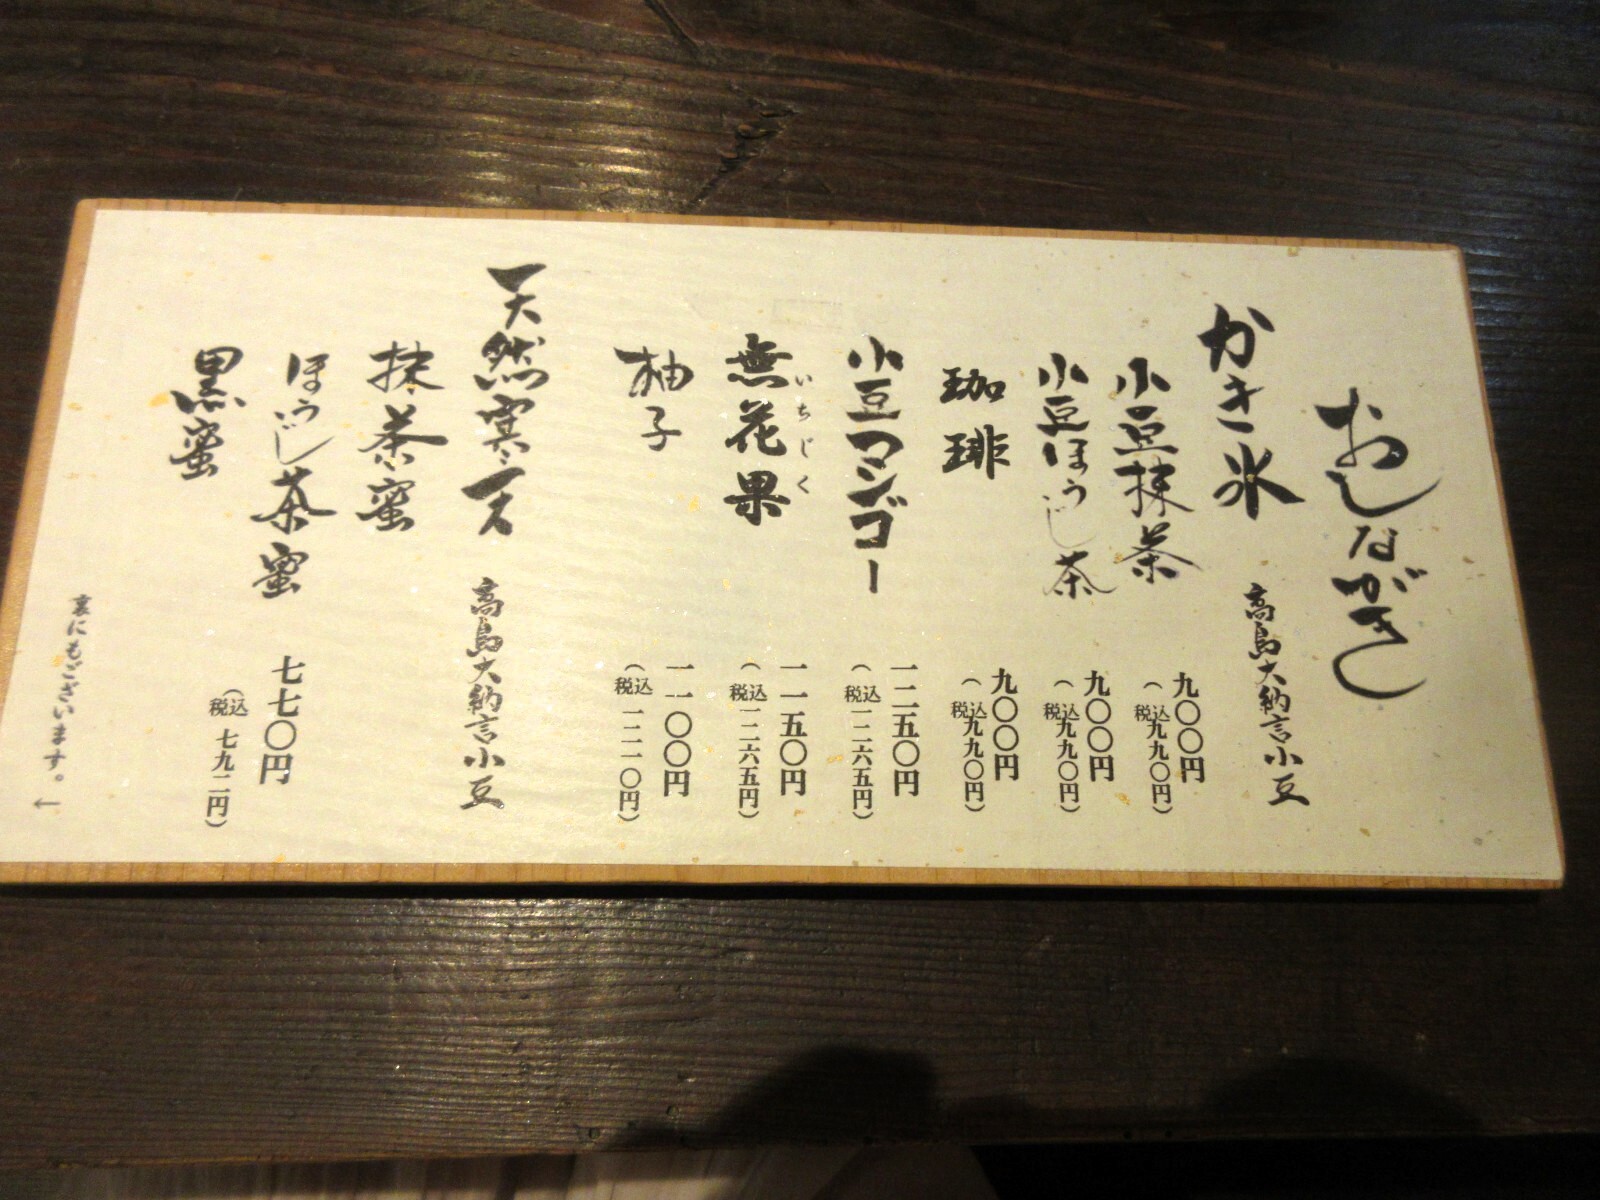 おしながき
かき氷　高島大納言小豆
小豆抹茶　九〇〇円
（税込九九〇円）
小豆ほうじ茶　九〇〇円
（税込九九〇円）
珈琲　九〇〇円
（税込九九〇円）
小豆マンゴー　一二五〇円
（税込一二六五円）
無花果　一一五〇円
いちじく
（税込一二六五円）
柚子　一一〇〇円
（税込一二一〇円）
天然寒天　高島大納言小豆
抹茶蜜
ほうじ茶蜜　七七〇円
（税込七九二円）
黒蜜
裏にもございます。←